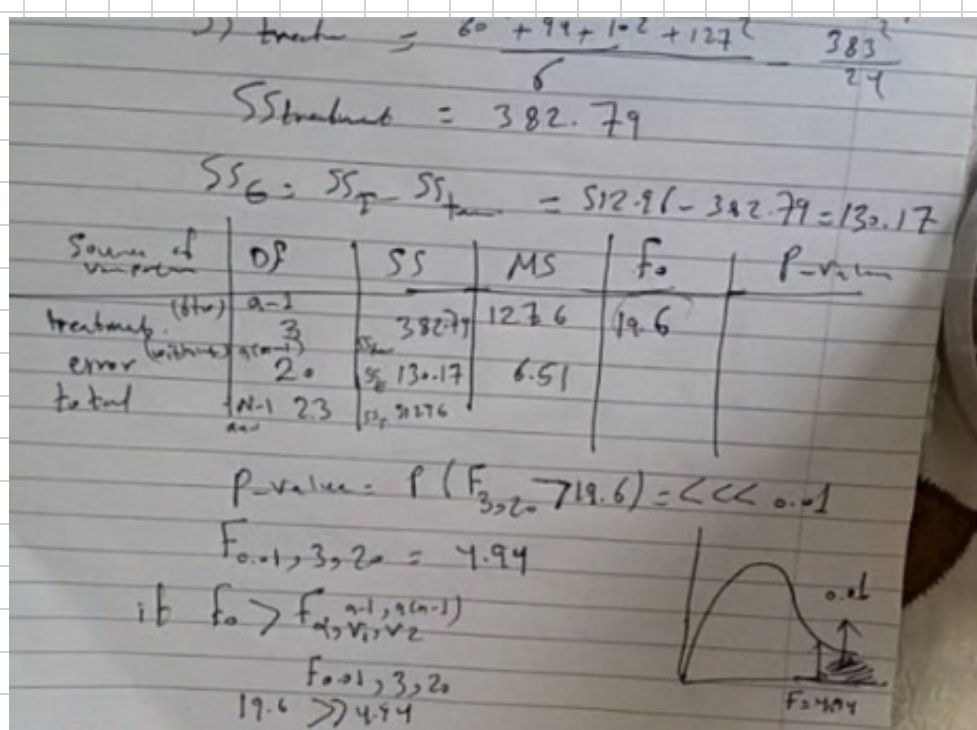 = 60² + 94² + 102² + 127² / 6 - 383² / 24
SStreatment = 382.79
SSE = SST - SStrea = 512.96 - 382.79 = 130.17
Source of variation | DF | SS | MS | F0 | P-value
treatments | a-1 3 | 382.79 | 127.6 | 19.6
error (within) | a(n-1) 20 | SSE 130.17 | 6.51
total | N-1 23 | SST
P-value = P(F3,20 > 19.6) = <<< 0.01
F0.01,3,20 = 4.94
if F0 > Fα,v1,v2 a-1, a(n-1)
0.01
F0.01,3,20
19.6 >> 4.94
F=4.94